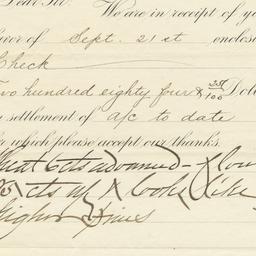 Dear Sir: We are in receipt of yo
avor of Sept. 21st enclos
Check
Two hundred eighty four & 35/100 Doll
settlement of a/c to date
for which please accept our thanks.
heat 6 cts advanced - & lou
cts up & looks like
higher prices